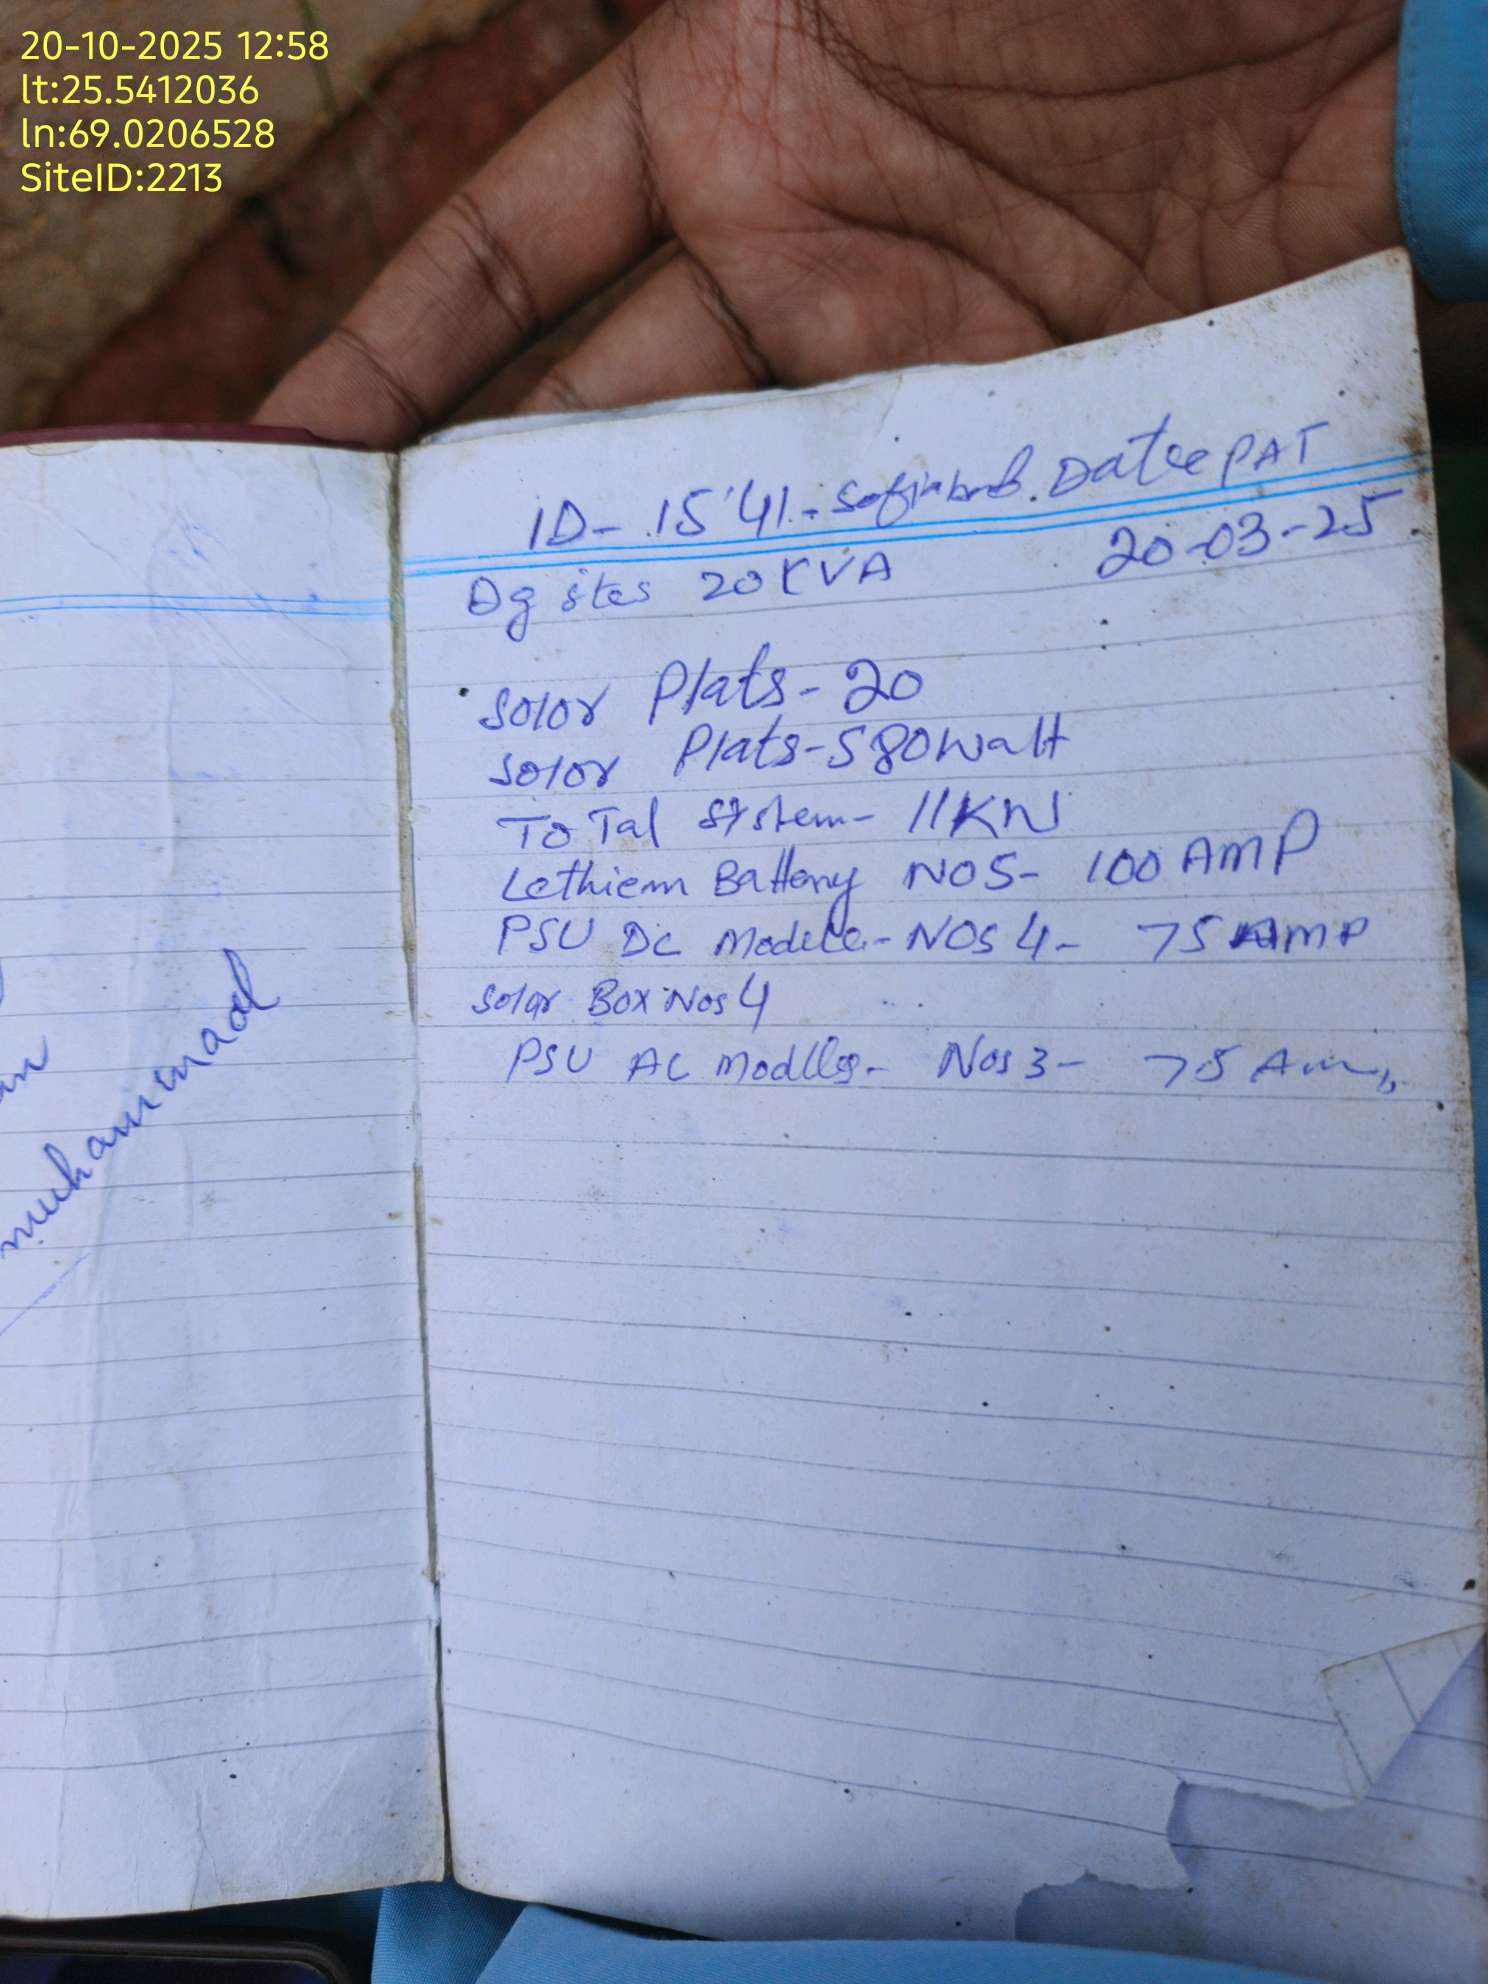 20-10-2025 12:58
lt:25.5412036
ln:69.0206528
SiteID:2213
muhammad
ID- 1541- Date PAT
Dg sites 20 KVA 20-03-25
Solor Plats- 20
Solor Plats- 580 Watt
ToTal System- 11KW
Lethiem Battery NO5- 100 AMP
PSU DC Modele- NOS 4- 75 AMP
Solar Box Nos 4
PSU AC Modlles- Nos 3- 75 Amp